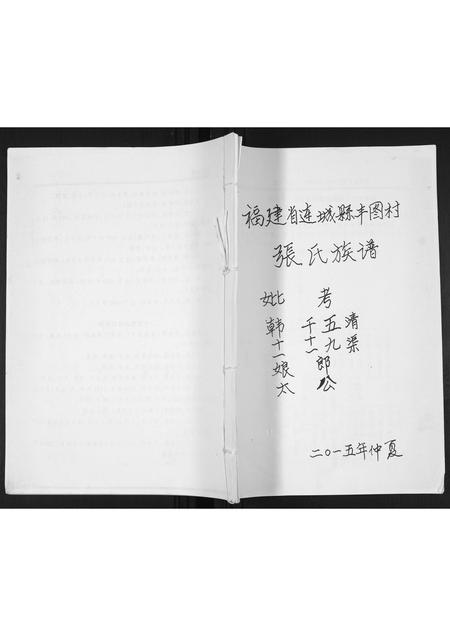 福建省连城縣丰图村
張氏族谱
清渠
考 五九 千十二 郎公
妣 韩十一娘太
二〇一五年仲夏